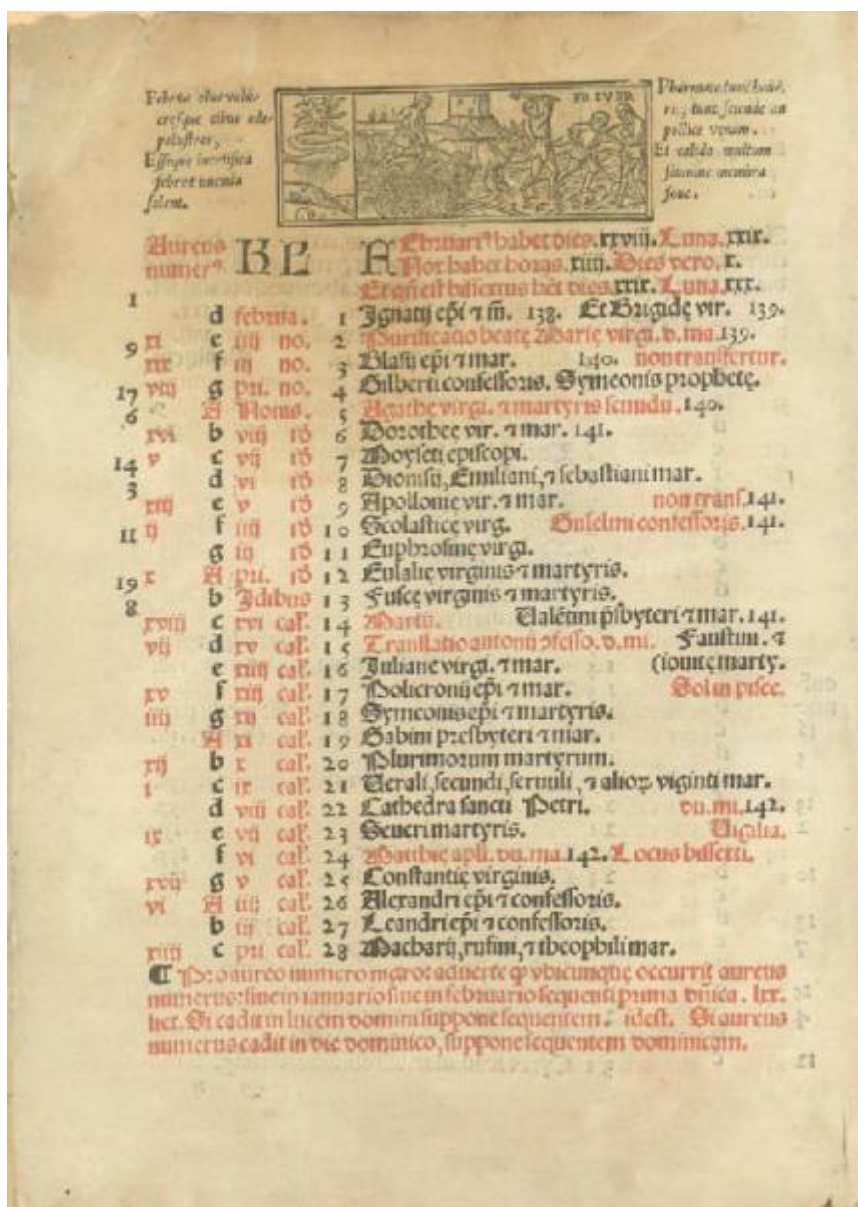 Febrüa
palustres,
febres
solent.
pollice venam.
Et calida multum
membra
foue.
Aureus KL FEbruari⁹ habet dies.xxviij.Luna.xxix.
numer⁹ Nox habet horas.xiiij.Dies vero.x.
Et qñ est bissextus hét dies.xxix.Luna.xxx.
1
d februa. 1 Ignatij epi̅ ⁊ m̅. 138. Et Brigidę vir. 139.
9 xi e iiij no. 2 Purificatio beatę Marię virgi.d.ma.139.
xix f iij no. 3 Blasij epi̅ ⁊ mar. 140. non transfertur.
17 viij g pri. no. 4 Gilberti confessoris. Symeonis prophetę.
6 A Nonis. 5 Agathę virgi. ⁊ martyris semidu.140.
xvi b viij id̅ 6 Dorotheę vir. ⁊ mar. 141.
14 v c vij id̅ 7 Moyseti episcopi.
3 d vi id̅ 8 Dionisij, Emiliani, ⁊ sebastiani mar.
xiij e v id̅ 9 Apollonię vir. ⁊ mar. non trans.141.
11 ij f iiij id̅ 10 Scolasticę virg. Guselmi confessoris.141.
g iij id̅ 11 Euphrosinę virgi.
19 x A pri. id̅ 12 Eulalię virginis ⁊ martyris.
8 b Idibus 13 Fuscę virginis ⁊ martyris.
xviij c xvi cal̕. 14 Martij. Ualẽtini p̅sbyteri ⁊ mar.141.
vij d xv cal̕. 15 Translatio antonij ɔfesso.d.mi. Faustini. ⁊
e xiiij cal̕. 16 Iulianę virgi. ⁊ mar. (iouitę marty.
xv f xiij cal̕. 17 Policronij epi̅ ⁊ mar. Sol in pisce.
iiij g xij cal̕. 18 Symeonis epi̅ ⁊ martyris.
A xi cal̕. 19 Gabini presbyteri ⁊ mar.
xij b x cal̕. 20 Plurimorum martyrum.
i c ix cal̕. 21 Uerali, secundi, seruili, ⁊ alioꝝ viginti mar.
d viij cal̕. 22 Cathedra sancti Petri. du.mi.142.
ix e vij cal̕. 23 Seueri martyris. Uigilia.
f vi cal̕. 24 Matthię apl̅i.du.ma.142.Locus bissexti.
xvij g v cal̕. 25 Constantię virginis.
vi A iiij cal̕. 26 Alexandri epi̅ ⁊ confessoris.
b iij cal̕. 27 Leandri epi̅ ⁊ confessoris.
xiiij c pri cal̕. 28 Macharij, rufini, ⁊ theophili mar.
¶ Pro aureo numero nigro: aduerte ꝙ vbicunque occurrit aureus
numerus: siue in ianuario siue in februario sequenti prima dñica .lxx.
Si cadit in lucem domini suppone sequentem. idest. Si aureus
numerus cadit in die dominico, suppone sequentem dominicam.